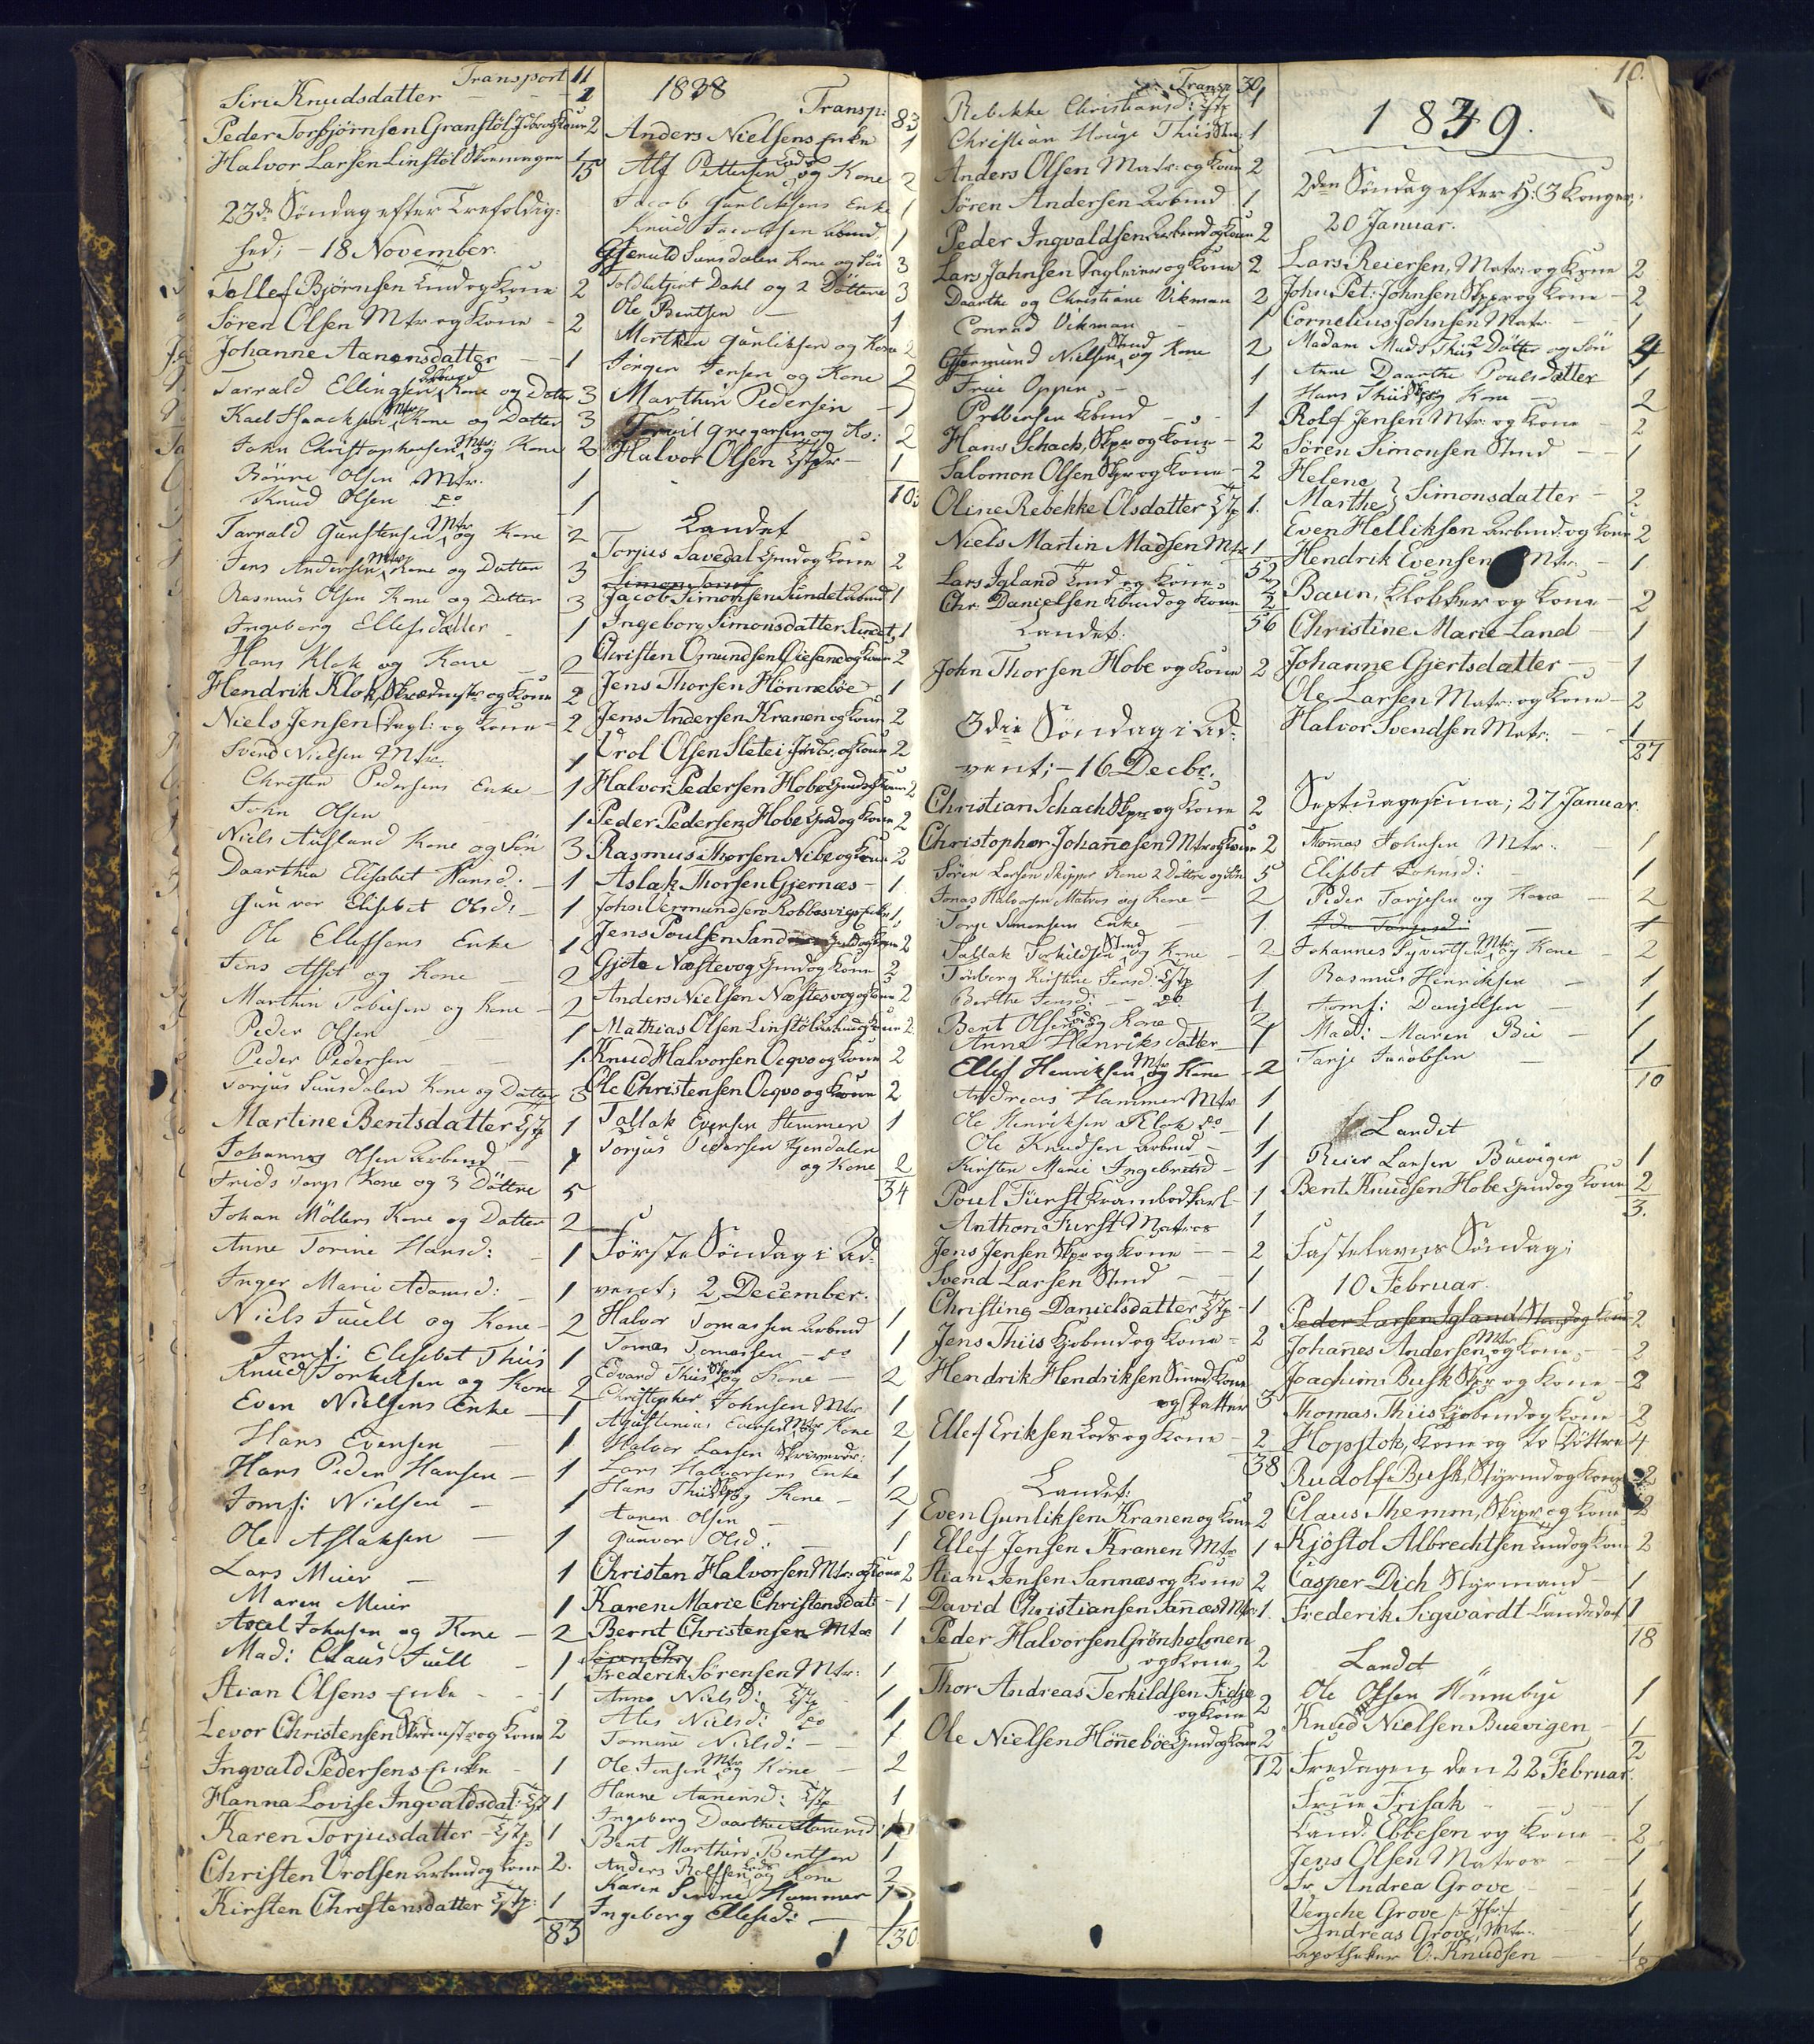 Transport 11
Siri Knudsdatter - 1
Peder Torbjörnsen Granstöl og Kone 2
Halvor Larsen Linstöl 1
15
23de Söndag efter Trefoldig-
hed; - 18 November.
Tellef Björnsen og Kone 2
Sören Olsen Mtr og Kone - 2
Johanne Aanonsdatter - - 1
Tarrald Ellingsen Arbmd Kone og Datter 3
Kael Isaacksen Mtr Kone og Datter 3
John Christophersen Mtr: og Kone 2
Börre Olsen Mtr. 1
Knud Olsen do 1
Tarrald Gunstensen Mtr og Kone 2
Jens Andersen Mtr Kone og Datter 3
Rasmus Olsen Kone og Datter 3
Ingeborg Ellefsdatter - 1
Hans Klok og Kone - 2
Hendrik Klok, og Kone 2
Niels Jensen og Kone - 2
Svend Nielsen Mtr. 1
Christen Pedersens Enke - 1
John Olsen 1
Niels Aufland Kone og Sön 3
Daarthea Elisabet Hansd. - 1
Gunvor Elisebet Olsd: - 1
Ole Ellefsens Enke - 1
Jens Assit og Kone - 2
Marthin Tobiesen og Kone - 2
Peder Olsen - 1
Peder Pedersen - 1
Torjus Suusdalen Kone og Datter 3
Martine Bentsdatter 1
Johannes Olsen Arbmd - 1
Frids Torp Kone og 3 Döttre 5
Johan Möllers Kone og Datter 2
Anne Torine Hansd: - 1
Inger Marie Adamsd: - 1
Niels Juell og Kone - 2
Jomf: Elisebet Thiis 1
Knud Torkelsen og Kone 2
Even Nielsens Enke - 1
Hans Evensen - 1
Hans Peder Hansen - 1
Jomf: Nielsen - 1
Ole Aslaksen - 1
Lars Meier - 1
Maren Meier 1
Axel Johnsen og Kone - 2
Mad: Claus Juell - 1
Stian Olsens Enke - - 1
Levor Christensen og Kone 2
Ingvald Pedersens Enke - 1
Hanna Lovise Ingvaldsdat: 1
Karen Torjusdatter - 1
Christen Vrolsen Arbmd og Kone 2.
Kirsten Christensdatter 1
83
1838
Transp: 83
Anders Nielsens Enke 1
Alf Pettersen Lods og Kone 2
Jacob Gunliksens Enke 1
Knud Jacobsen Arbmd 1
Gjeruld Suusdalen Kone og Sön 3
Toldbetjent Dahl og 2 Döttre 3
Ole Bentsen - 1
Morthen Gunliksen og Kone 2
Jörgen Jensen og Kone 2
Marthin Pedersen - 1
Torvil Gregersen og Ko: 2
Halvor Olsen - 1
103
Landet
Torjus Savedal Gmd og Kone 2
Jacob Simonsen Sundet Arbmd 1
Ingeborg Simonsdatter Sundet 1
Christen Omundsen og Kone 2
Jens Thorsen Hönneböe 1
Jens Andersen Kranen og Kone 2
Vrol Olsen Sletei og Kone 2
Halvor Pedersen Hobe Gmd og Kone 2
Peder Pedersen Hobe Gmd og Kone 2
Rasmus Thorsen Nibe og Kone 2
Aslak Thorsen Gjernæs - 1
John Vermundsen Robbesvigs Enke 1
Jens Poulsen Sand og Kone 2
Gjöte Næstevog Gmd og Kone 2
Anders Nielsen Næstesvog og Kone 2
Mathias Olsen Linstöl og Kone 2
Knud Halvorsen Ocqvo og Kone 2
Ole Christensen Ocqvo og Kone 2
Tallak Evensen Stemmen 1
Torjus Pedersen Gjendalen
og Kone 2
34
Förste Söndag i Ad-
vent; 2 December.
Halvor Tomassen Arbmd 1
Tomas Tomassen - do 1
Edvard Thiis Skpr og Kone - 2
Christopher Johnsen Mtr 1
Agustinius Evensen Mtr Kone 2
Halvor Larsen 1
Lars Halvorsens Enke 1
Hans Thiis Skpr og Kone - 2
Aanen Olsen - 1
Gunvor Olsd: - 1
Christen Halvorsen Mtr: og Kone 2
Karen Marie Christensdat: - 1
Bernt Christensen Mtr 1
Sören Chr
Frederik Sörensen Mtr: 1
Anne Nielsd: 1
Ales Nielsd: do 1
Tomine Nielsd: - 1
Ole Jensen Mtr og Kone - 2
Hanne Aanensd: 1
Ingeborg Daarthea Aanensd: 1
Bent Marthin Bentsen 1
Anders Rolfsen Lods og Kone 2
Karen Serine Hammer 1
Ingeborg Ellefsd: - 1
130
Transp 30
Rebekke Christiansd: 1
Christian Houge Thiis 1
Anders Olsen Matr: og Kone 2
Sören Andersen Arbmd. 1
Peder Ingvaldsen Arbmd og Kone 2
Lars Jahnsen og Kone 2
Daarthe og Christiane Vikman 2
Conrad Vikman - 1
Gjermund Nielsen Stmd og Kone 2
Frue Oppen - 1
Arbmd - 1
Hans Schach, Skpr og Kone - 2
Salomon Olsen Skpr og Kone - 2
Oline Rebekke Olsdatter 1.
Niels Martin Madsen Mtr 1
52
Lars Igland og Kone, 2
Chr: Danielsen og Kone 2
56
Landet:
John Thorsen Hobe og Kone 2
3die Söndag i Ad-
vent; - 16 Decbr.
Christian Schach Skpr og Kone 2
Christopher Johannesen Mtr og Kone 2
Sören Larsen Skipper Kone 2 Döttre og Sön 5
Jonas Halvorsen Matros og Kone - 2
Torje Simonsens Enke - 1.
Tallak Torkildsen Stmd og Kone - 2
Torborg Kirstine Jensd: 1
Berthe Jensd: - do. 1
Bent Olsen Lods og Kone - 2
Anne Henriksdatter 1
Ellef Henriksen Mtr og Kone - 2
Andreas Hammer Mtr 1
Ole Henriksen Klok do 1
Ole Knudsen Arbmd - 1
Kirsten Marie Ingebretsd - 1
Poul Fürst Krambodkarl - 1
Anthon Fürst Matros 1
Jens Jensen Skpr og Kone - - 2
Svend Larsen Stmd - - 1
Christine Danielsdatter - 1
Jens Thiis og Kone - 2
Hendrik Hendriksen Smed, Kone
og Datter 3
Ellef Eriksen Lods og Kone - 2
38
Landet:
Even Gunliksen Kranen og Kone 2
Ellef Jensen Kranen Mtr 1
Stian Jensen Sannæs og Kone 2
David Christiansen Sannæs Mtr 1.
Peder Halvorsen Grönholmen
og Kone, 2
Thor Andreas Terkildsen Fidje
og Kone 2
Ole Nielsen Hönneböe Gmd og Kone 2
12
10.
1839.
2den Söndag efter H: 3 Konger,
20 Januar.
Lars Reiersen, Matr: og Kone 2
John Pet: Johnsen Skpr og Kone - 2
Cornelius Johnsen Matr. - - 1
Madam Mads Thiis 2 Döttre og Sön 4
Anne Daarthe Poulsdatter 1
Hans Thiis Skpr og Kone - 2
Rolf Jensen Mtr: og Kone - 2
Sören Simonsen Stmd - - 1
Helene
Marthe } Simonsdatter - 2.
Even Helliksen Arbmd. og Kone 2
Hendrik Evensen Mtr. - 1
Baun, Klokker og Kone - 2
Christine Marie Land - 1
Johanne Gjertsdatter - 1
Ole Larsen Matr: og Kone - 2
Halvor Svendsen Matr. - - 1
27
Septuagesima; 27 Januar.
Thommas Johnsen Mtr. 1
Elisbet Johnsd: - 1
Peder Torjesen og Kone - 2
Johannes Syvertsen Mtr: og Kone - 2
Rasmus Henriksen - 1
Jomf: Danjelsen - 1
Mad: Maren Bie - 1
Tarje Jacobsen - 1
10
Landet
Reier Larsen Buevigen 1
Bent Knudsen Hobe Gmd og Kone 2
3.
Fastelavns Söndag;
10 Februar.
Peder Larsen Igland og Kone 2
Johannes Andersen Mtr og Kone, - - 2
Joachim Busk Skpr og Kone - 2
Thomas Thiis og Kone - 2
Hopstok, Kone og to Döttre 4
Rudolf Busk, Styrmd og Kone 2
Claus Themm, Skipr og Kone 2
Kjöstol Albrechtsen og Kone 2
Casper Dich Styrmand - 1
Frederik Sigwardt Candidat 1
18
Landet
Ole Olsen Hönnebye 1
Knud Nielsen Buevigen - 1
2
Fredagen den 22 Februar.
Frue Frisak - - - 1
Cand. Ebbesen og Kone - 2
Jens Olsen Matros - - 1
Fr. Andrea Grove - - 1
Venche Grove - - 1
Andreas Grove, Mtr. - - 1
Apotheker O. Knudsen - - 1
8